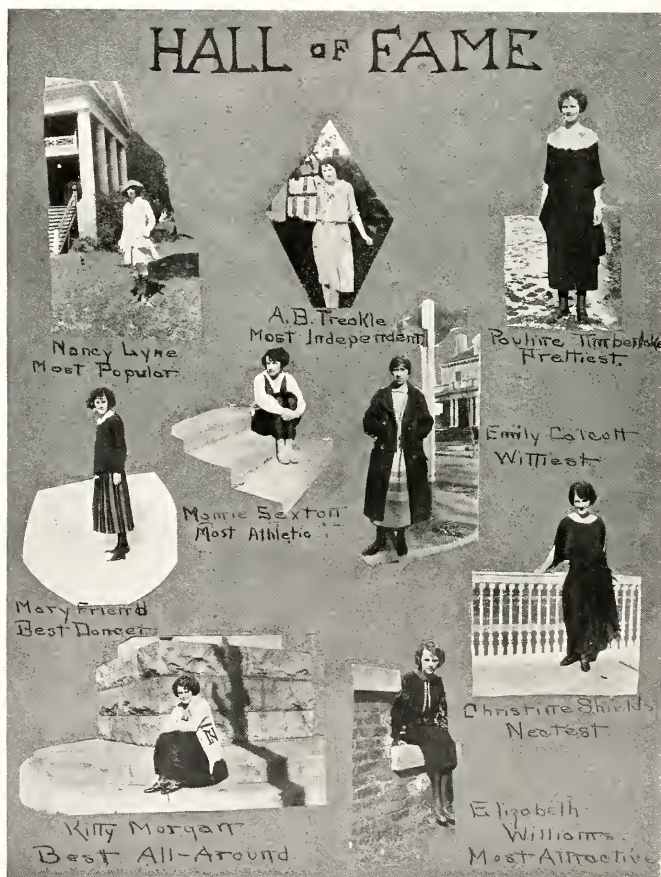 HALL OF FAME
Nancy Lyne
Most Popular
A.B. Treakle
Most Independent
Pauline Timberlake
Prettiest.
Mamie Sexton
Most Athletic
Emily Calcott
Wittiest
Mary Friend
Best Dancer
Christine Shields
Neatest.
N
Kitty Morgan
Best All-Around
Elizabeth
Williams.
Most Attractive